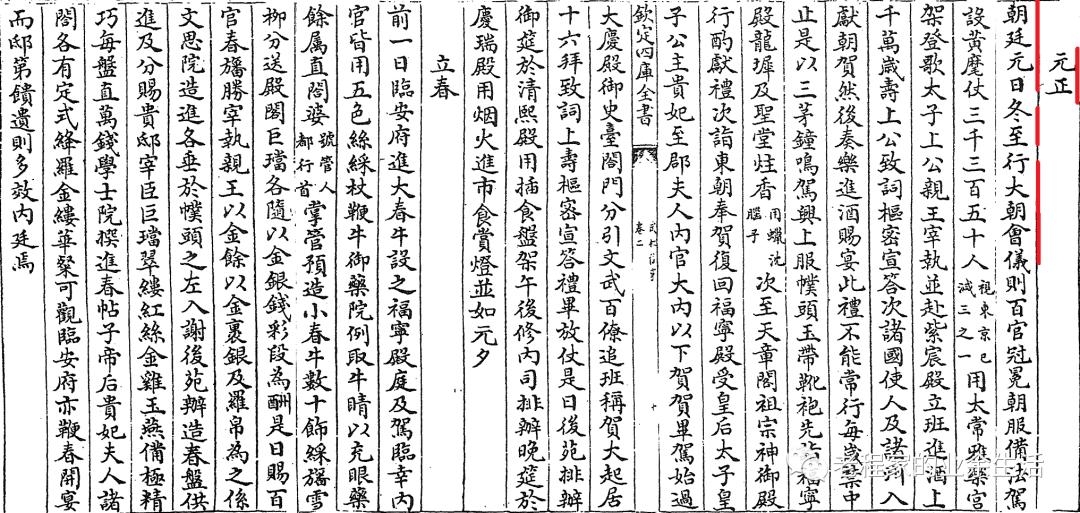 元正
朝廷元日冬至行大朝會儀則百官冠冕朝服備法駕
設黃麾仗三千三百五十人視東京已減三之一用太常雅樂宮
架登歌太子上公親王宰執並赴紫宸殿立班進酒上
千萬歲壽上公致詞樞密宣答次諸國使人及諸州入
獻朝賀然後奏樂進酒賜宴此禮不能常行每歲禁中
止是以三茅鐘鳴駕興上服幞頭玉帶靴袍先詣福寧
殿龍墀及聖堂炷香用蠟沈腦子次至天章閣祖宗神御殿
行酌獻禮次詣東朝奉賀復回福寧殿受皇后太子皇
子公主貴妃至郡夫人內官大內以下賀賀畢駕始過
欽定四庫全書
卷二
大慶殿御史臺閤門分引文武百僚追班稱賀大起居
十六拜致詞上壽樞密宣答禮畢放仗是日後苑排辦
御筵於清熙殿用插食盤架午後修內司排辦晚筵於
慶瑞殿用烟火進市食賞燈並如元夕
立春
前一日臨安府進大春牛設之福寧殿庭及駕臨幸內
官皆用五色絲綵杖鞭牛御藥院例取牛睛以充眼藥
餘属直閤婆號管人都行首掌管預造小春牛數十飾綵旛雪
柳分送殿閣巨璫各隨以金銀錢彩段為酬是日賜百
官春旛勝宰執親王以金餘以金裹銀及羅帛為之係
文思院造進各垂於幞頭之左入謝後苑辦造春盤供
進及分賜貴邸宰臣巨璫翠縷紅絲金雞玉燕備極精
巧每盤直萬錢學士院撰進春帖子帝后貴妃夫人諸
閤各有定式絳羅金縷華粲可觀臨安府亦鞭春開宴
而邸第饋遺則多效內廷焉